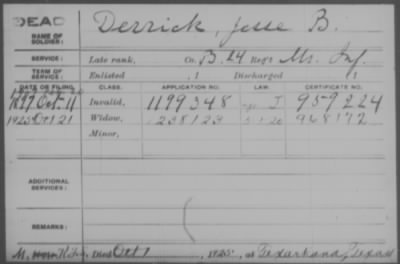 DEAD
NAME OF SOLDIER: Derrick, Jesse B.
SERVICE: Late rank, Co. B. 24 Reg't Ms. Inf.
TERM OF SERVICE: Enlisted , 1 Discharged , 1
DATE OF FILING. CLASS. APPLICATION NO. LAW. CERTIFICATE NO.
1897 Oct. 11 Invalid, 1199348 J 959224
1925 Oct 21 Widow, 1238123 5-1-20 968172
Minor,
ADDITIONAL SERVICES:
REMARKS:
Died Oct 1, 1925, at Texarkana, Texas